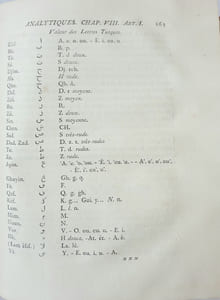 ANALYTIQUES. CHAP. VIII. Art. I. 265
Valeur des Lettres Turques.
Elif. ا A. e. o. ou. - E. i. eu. u.
Be. ب B. p.
Te. ت T. d doux.
Se. ث S doux.
Djim. ج Dj. tch.
Hha. ح H rude.
Khi. خ Qh.
Dal. د D. t moyens.
Zal. ذ Z moyen.
Re. ر R.
Ze. ز Z doux.
Sin. س S moyenne.
Chin. ش CH.
Sad. ص S très-rude.
Dad. Zad. ض D. z. très-rudes
Ta. ط T. d. rudes.
Za. ظ Z. rude.
Ghayin. غ Gh. g. q.
Fe. ف F.
Qaf. ق Q. gh.
Kef. ك K. g... N. n.
Lam. ل L.
Mim. م M.
Noun. ن N.
Vav. و V. - O. ou. u. - E. i.
He. ه H douce. - A. é.
(Lam élif.) لا La. lé.
Yé. ى Y. - E. i.